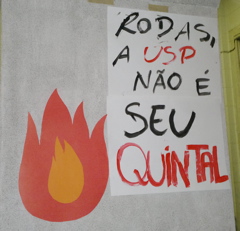 RODAS,
A USP
NÃO É
SEU
QUINTAL